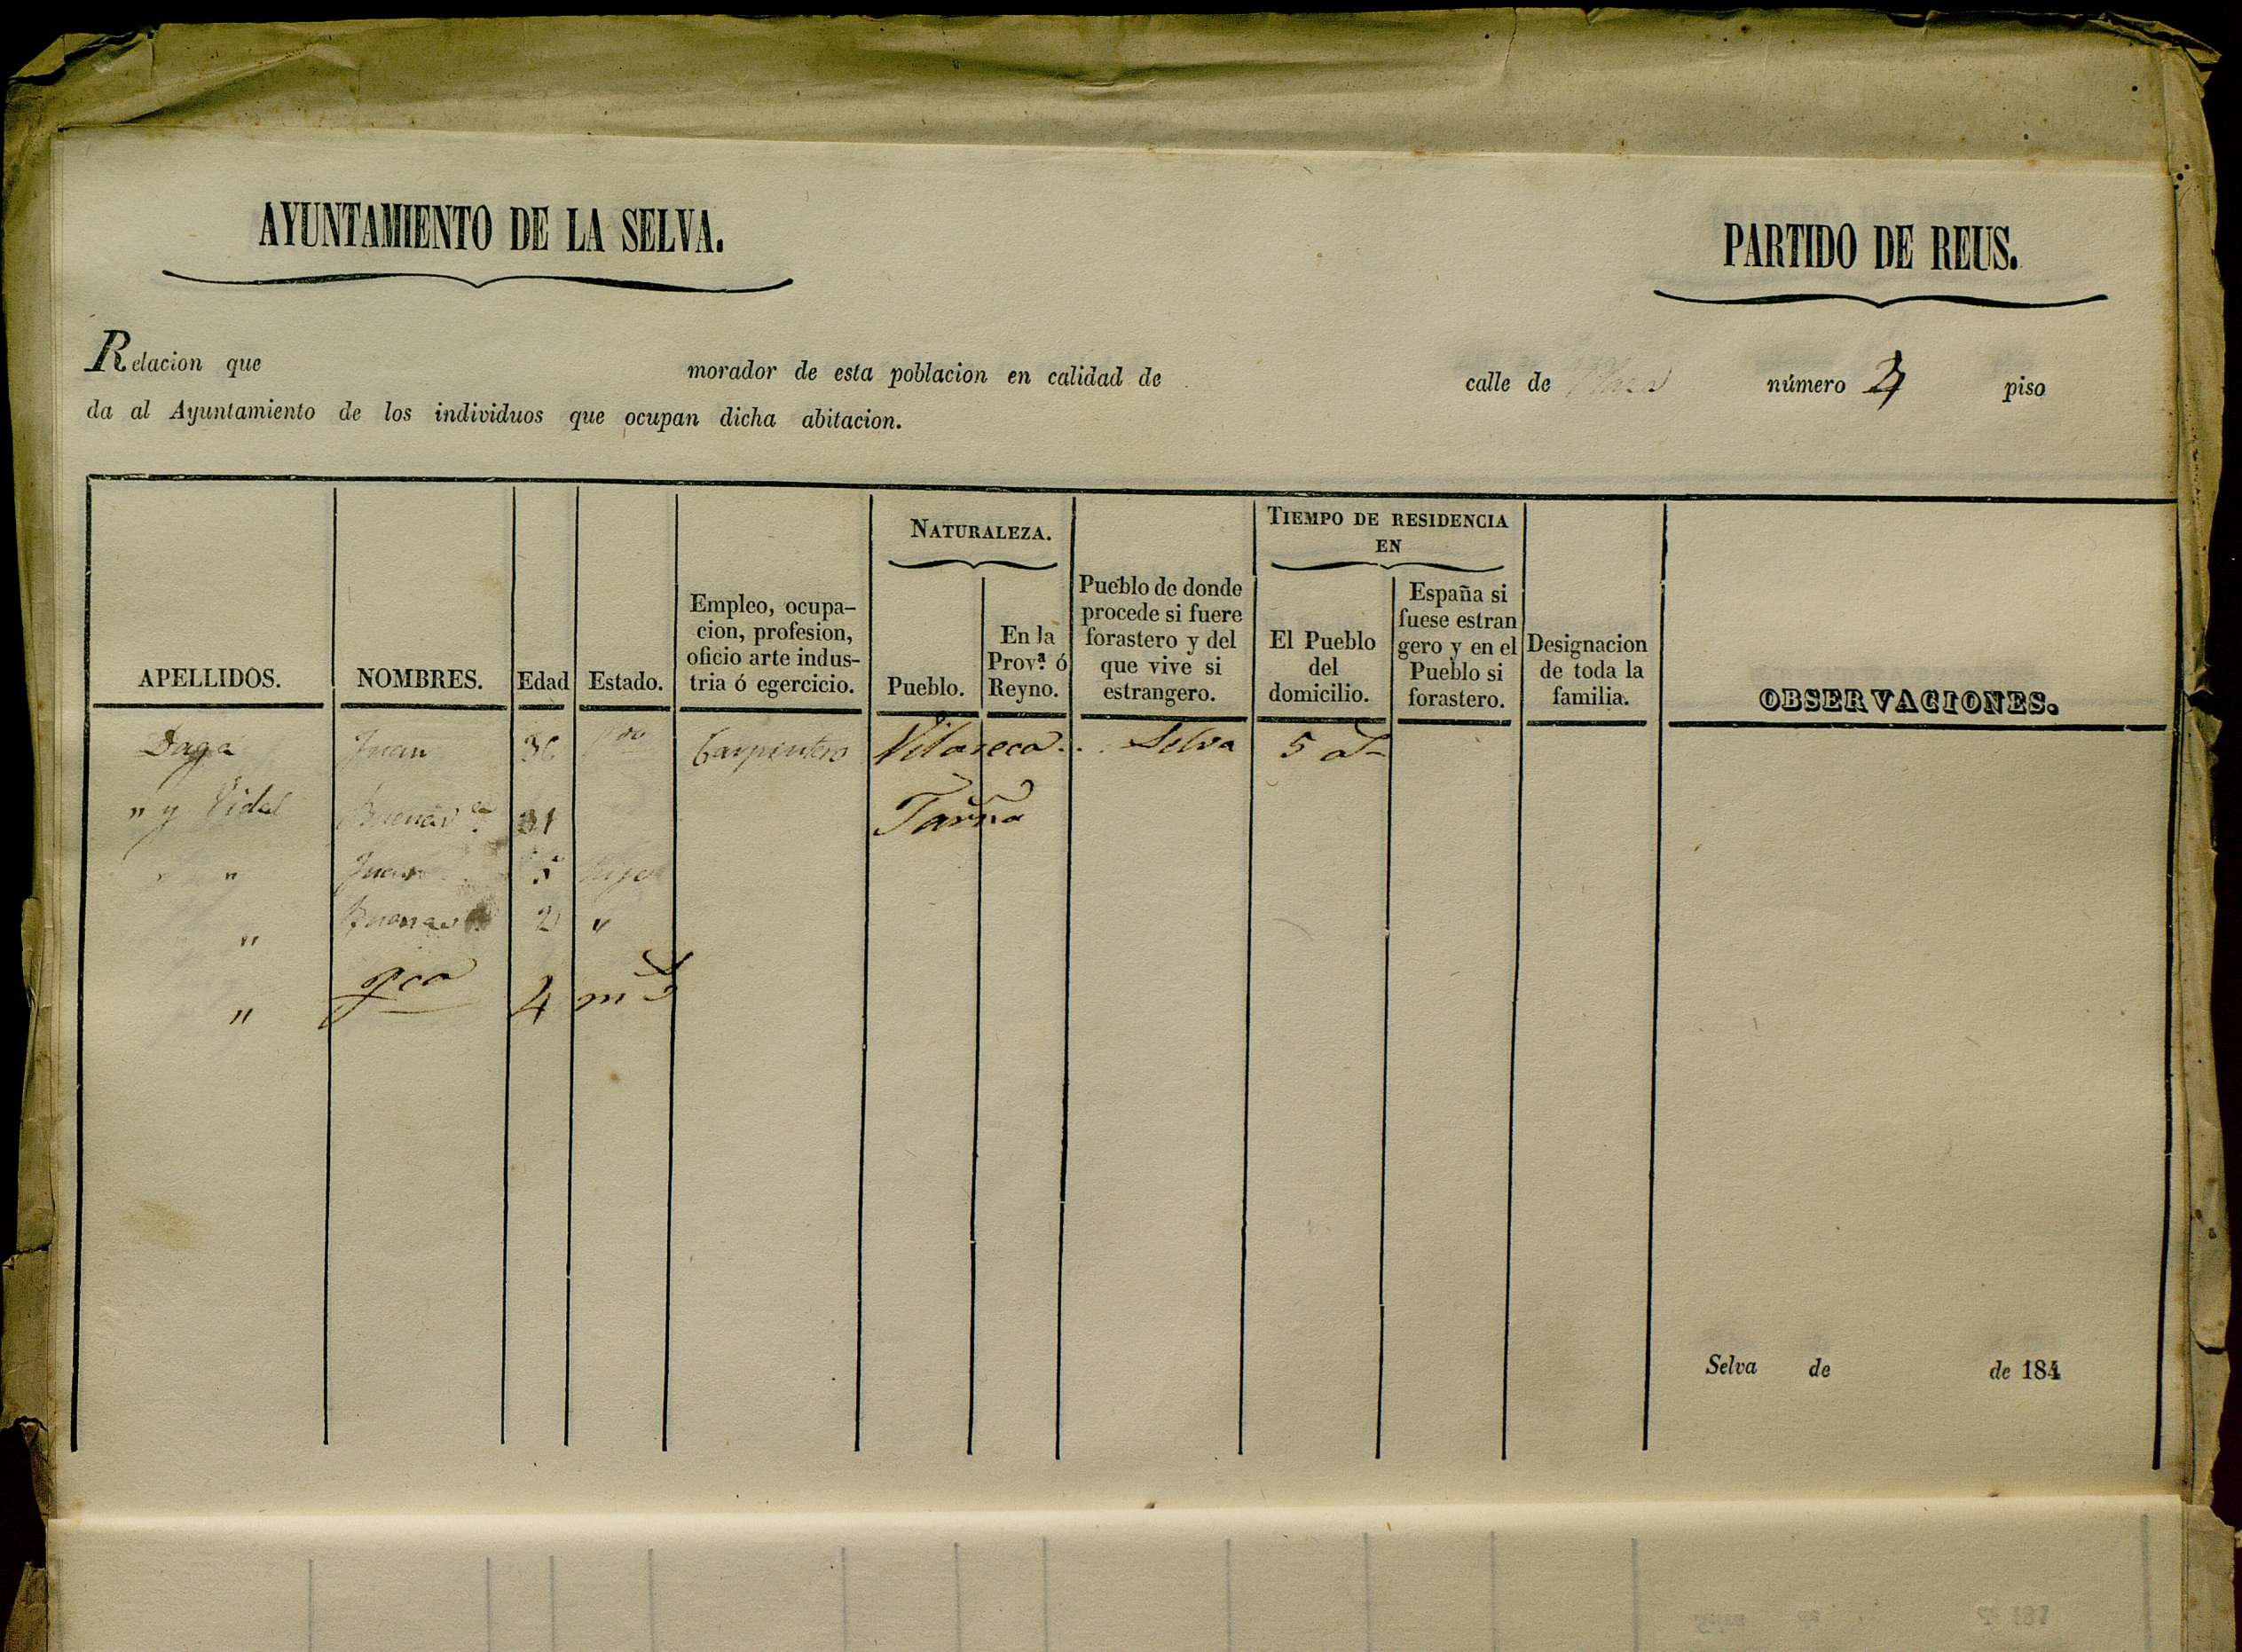 AYUNTAMIENTO DE LA SELVA.
PARTIDO DE REUS.
Relacion que morador de esta poblacion en calidad de calle de número piso
da al Ayuntamiento de los individuos que ocupan dicha abitacion.
APELLIDOS.
NOMBRES.
Edad
Estado.
Empleo, ocupa-
cion, profesion,
oficio arte indus-
tria ó egercicio.
NATURALEZA.
Pueblo.
En la
Prov.ª ó
Reyno.
Pueblo de donde
procede si fuere
forastero y del
que vive si
estrangero.
TIEMPO DE RESIDENCIA
EN
El Pueblo
del
domicilio.
España si
fuese estran
gero y en el
Pueblo si
forastero.
Designacion
de toda la
familia.
OBSERVACIONES.
Daga Juan Carpintero Vilaseca Selva 5
" y Vidal
" " Juan 5 hijo
" 2 "
" 4
Selva de de 184